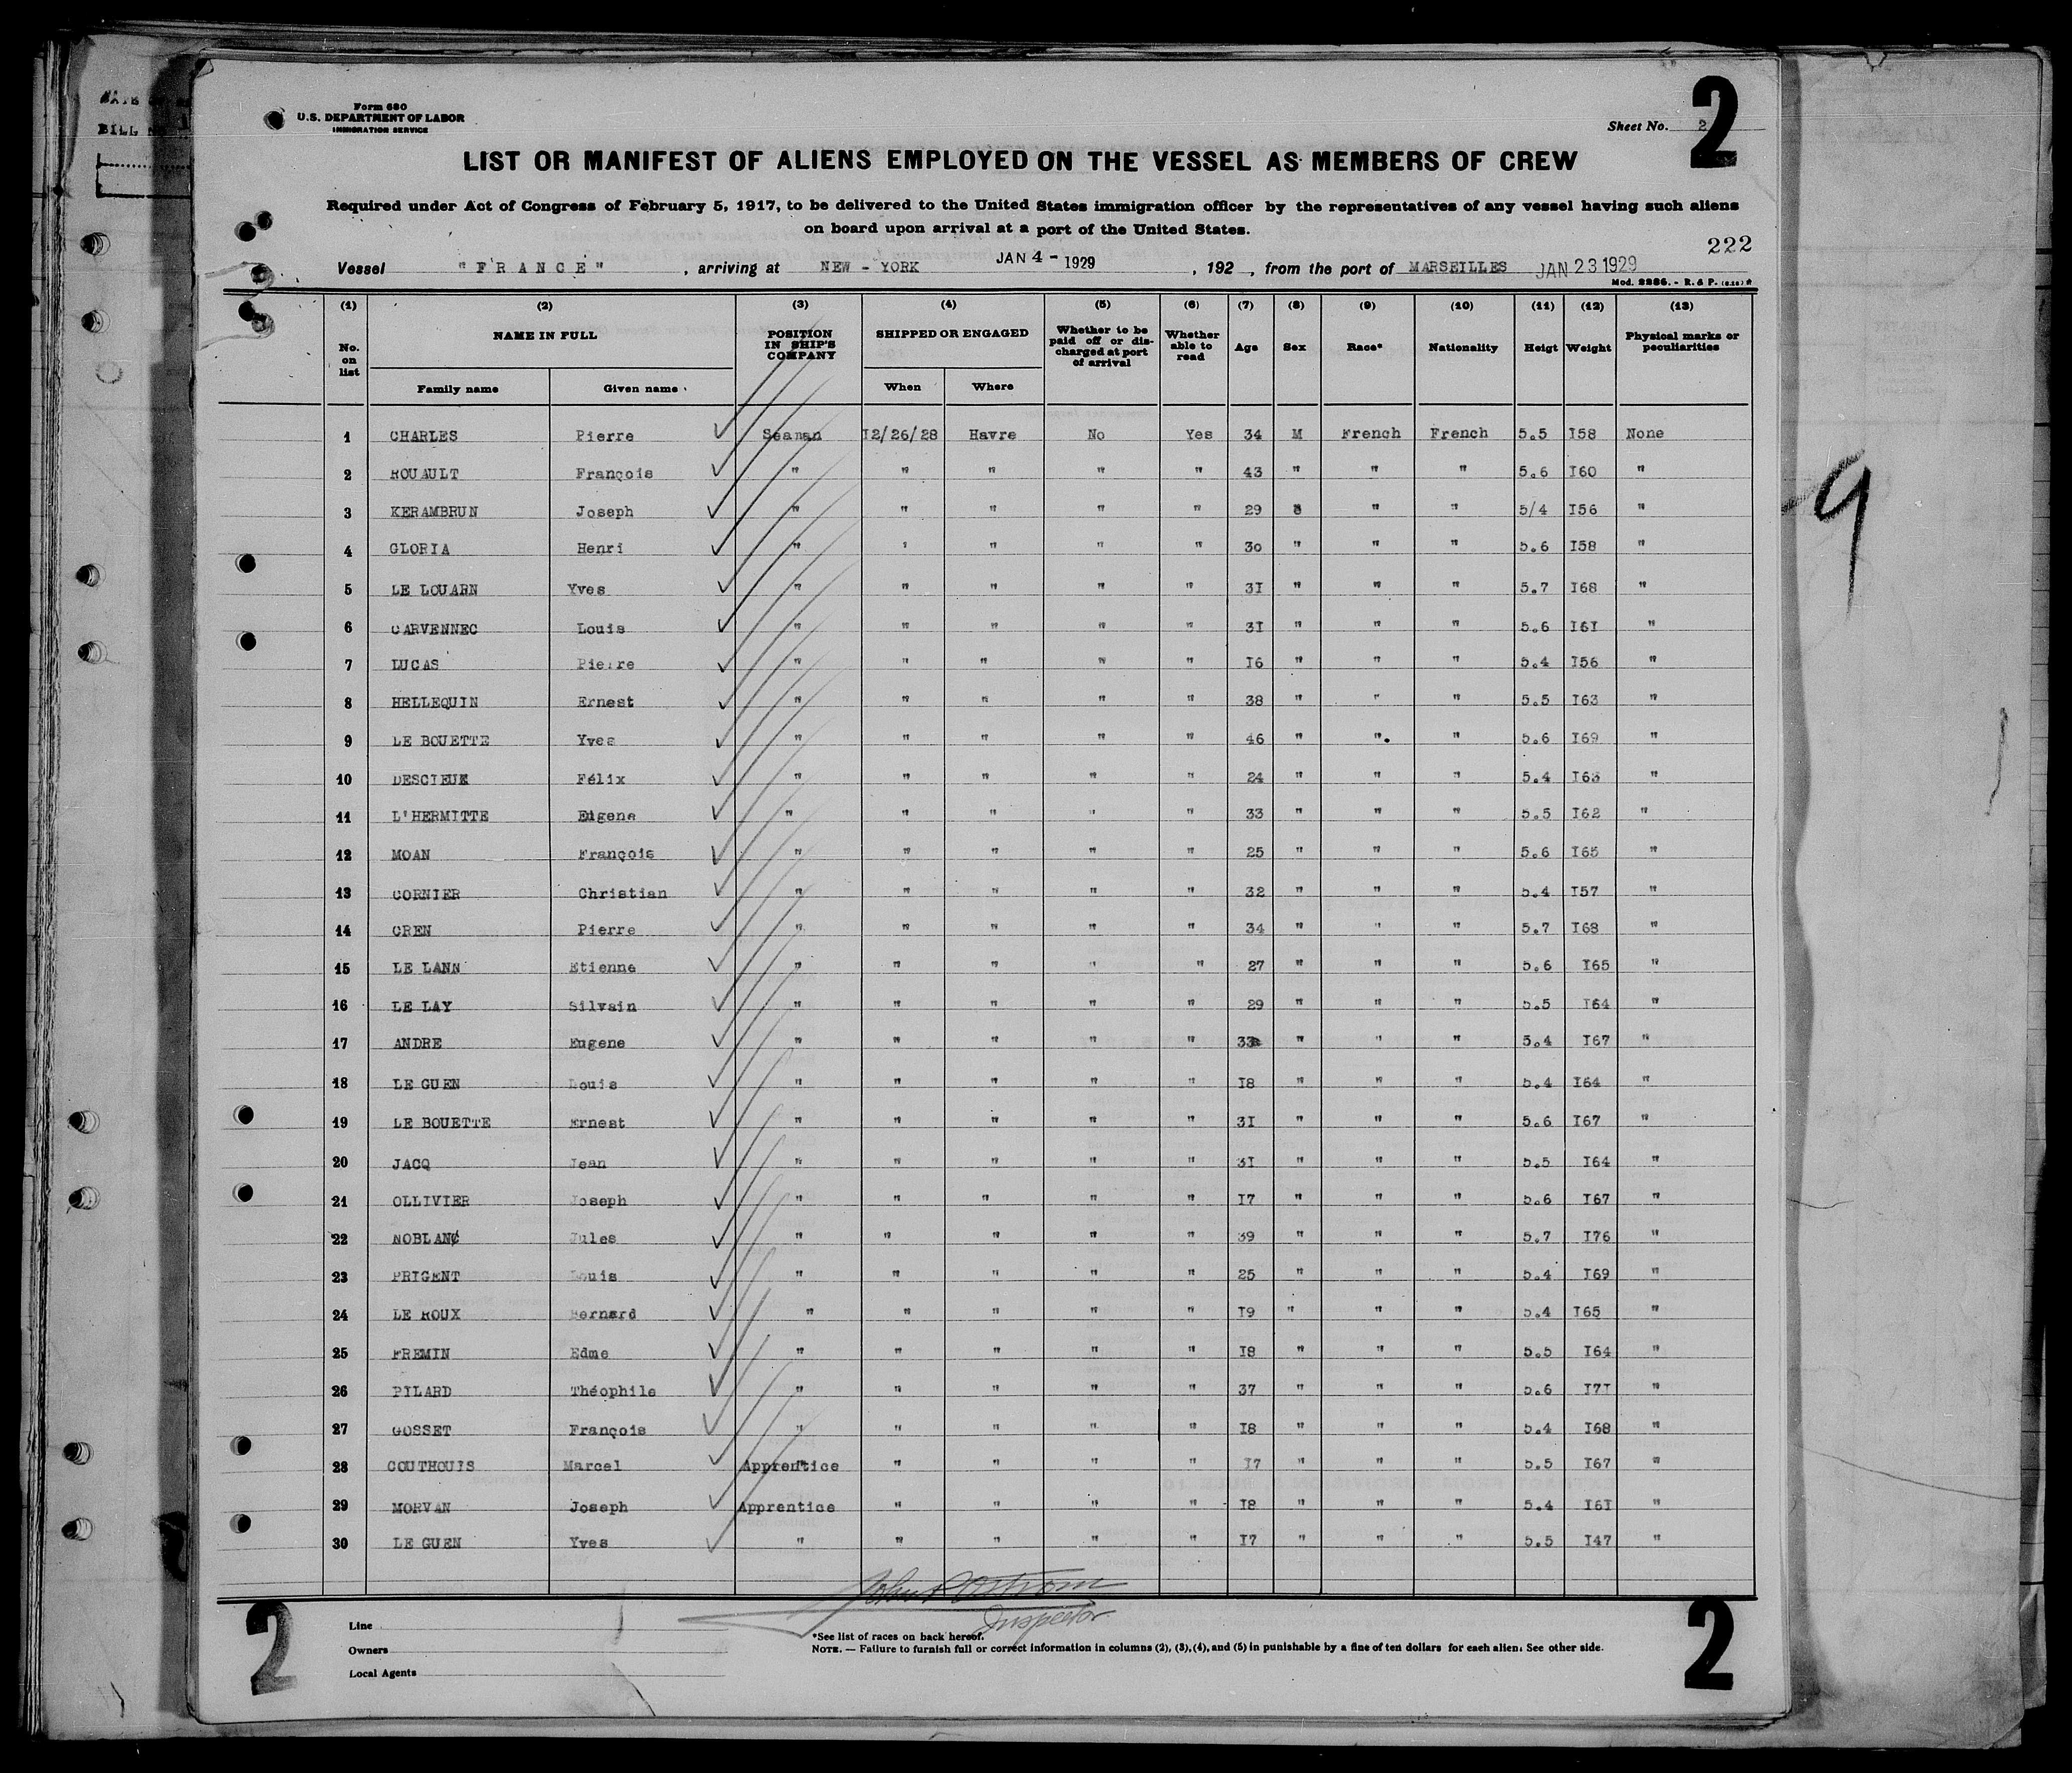 Form 680
U.S. DEPARTMENT OF LABOR
IMMIGRATION SERVICE
Sheet No. 2
2
LIST OR MANIFEST OF ALIENS EMPLOYED ON THE VESSEL AS MEMBERS OF CREW
Required under Act of Congress of February 5, 1917, to be delivered to the United States immigration officer by the representatives of any vessel having such aliens
on board upon arrival at a port of the United States.
222
Vessel "FRANCE" , arriving at NEW - YORK JAN 4 - 1929 , 192 , from the port of MARSEILLES JAN 23 1929
Mod. 2286. - R. & P.
(1) (2) (3) (4) (5) (6) (7) (8) (9) (10) (11) (12) (13)
No. on list NAME IN FULL Family name Given name POSITION IN SHIP'S COMPANY SHIPPED OR ENGAGED When Where Whether to be paid off or discharged at port of arrival Whether able to read Age Sex Race* Nationality Heigt Weight Physical marks or peculiarities
1 CHARLES Pierre Seaman I2/26/28 Havre No Yes 34 M French French 5.5 I58 None
2 ROUAULT François " " " " " 43 " " " 5.6 I60 "
3 KERAMBRUN Joseph " " " " " 29 " " " 5/4 I56 "
4 GLORIA Henri " " " " " 30 " " " 5.6 I58 "
5 LE LOUARN Yves " " " " " 3I " " " 5.7 I68 "
6 CARVENNEC Louis " " " " " 3I " " " 5.6 I6I "
7 LUCAS Pierre " " " " " I6 " " " 5.4 I56 "
8 HELLEQUIN Ernest " " " " " 38 " " " 5.5 I63 "
9 LE BOUETTE Yves " " " " " 46 " " " 5.6 I69 "
10 DESCIEUX Félix " " " " " 24 " " " 5.4 I63 "
11 L'HERMITTE Eugene " " " " " 33 " " " 5.5 I62 "
12 MOAN François " " " " " 25 " " " 5.6 I65 "
13 CORNIER Christian " " " " " 32 " " " 5.4 I57 "
14 CREN Pierre " " " " " 34 " " " 5.7 I68 "
15 LE LANN Etienne " " " " " 27 " " " 5.6 I65 "
16 LE LAY Silvain " " " " " 29 " " " 5.5 I64 "
17 ANDRE Eugene " " " " " 33 " " " 5.4 I67 "
18 LE GUEN Louis " " " " " I8 " " " 5.4 I64 "
19 LE BOUETTE Ernest " " " " " 3I " " " 5.6 I67 "
20 JACQ Jean " " " " " 3I " " " 5.5 I64 "
21 OLLIVIER Joseph " " " " " I7 " " " 5.6 I67 "
22 NOBLANC Jules " " " " " 39 " " " 5.7 I76 "
23 PRIGENT Louis " " " " " 25 " " " 5.4 I69 "
24 LE ROUX Bernard " " " " " I9 " " " 5.4 I65 "
25 FREMIN Edme " " " " " I8 " " " 5.5 I64 "
26 PILARD Théophile " " " " " 37 " " " 5.6 I7I "
27 GOSSET François " " " " " I8 " " " 5.4 I68 "
28 COUTHOUIS Marcel Apprentice " " " " I7 " " " 5.5 I67 "
29 MORVAN Joseph Apprentice " " " " I8 " " " 5.4 I6I "
30 LE GUEN Yves " " " " " I7 " " " 5.5 I47 "
Inspector
Line
Owners
Local Agents
*See list of races on back hereof.
NOTE. — Failure to furnish full or correct information in columns (2), (3), (4), and (5) in punishable by a fine of ten dollars for each alien. See other side.
2
2
9